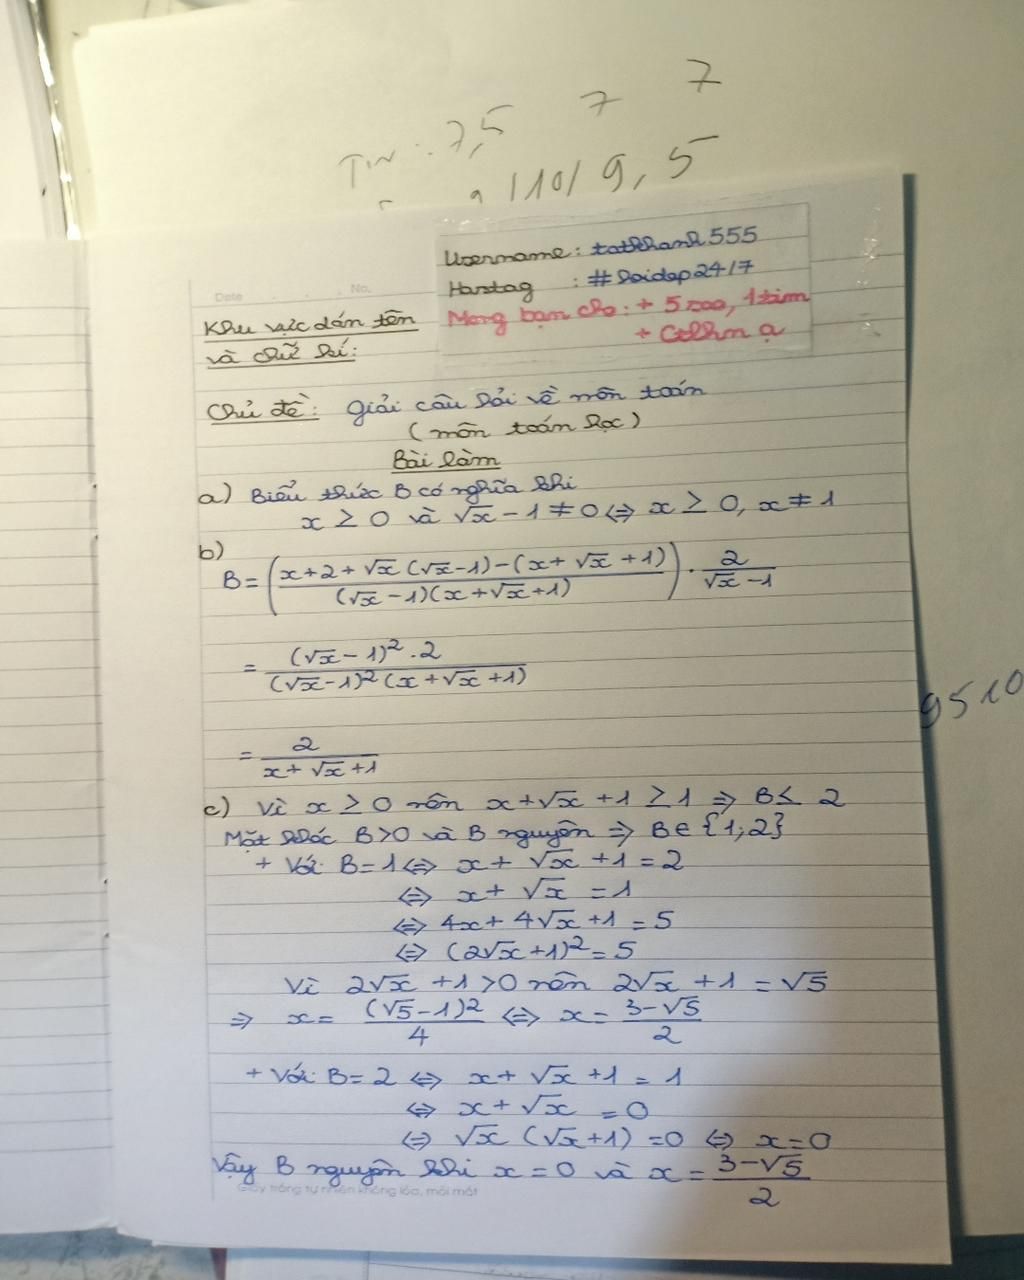 7,5 7 7
/10/ 9,5
Username: tatkhanh555
Hastag : #hoidap24/7
Mong bạn cho: + 5 sao, 1 tim
+ Ctlhn ạ
Date . . . No.
Khu vực dán tên
và chữ kí:
Chủ đề: Giải câu hỏi về môn toán
(môn toán học)
Bài làm
a) Biểu thức B có nghĩa khi
x ≥ 0 và √x - 1 ≠ 0 ⇔ x ≥ 0, x ≠ 1
b)
B = ((x+2+√x(√x-1)-(x+√x+1))/((√x-1)(x+√x+1))) . 2/(√x-1)
= ((√x-1)² . 2)/((√x-1)²(x+√x+1))
= 2/(x+√x+1)
c) Vì x ≥ 0 nên x+√x+1 ≥ 1 ⇒ B ≤ 2
Mặt khác B>0 và B nguyên ⇒ B∈{1;2}
+ Với B=1 ⇔ x+√x+1=2
⇔ x+√x=1
⇔ 4x+4√x+1=5
⇔ (2√x+1)²=5
Vì 2√x+1>0 nên 2√x+1=√5
⇒ x=(√5-1)²/4 ⇔ x=(3-√5)/2
+ Với B=2 ⇔ x+√x+1=1
⇔ x+√x=0
⇔ √x(√x+1)=0 ⇔ x=0
Vậy B nguyên khi x=0 và x=(3-√5)/2
Giấy trắng tự nhiên không lóa, mỏi mắt
9510